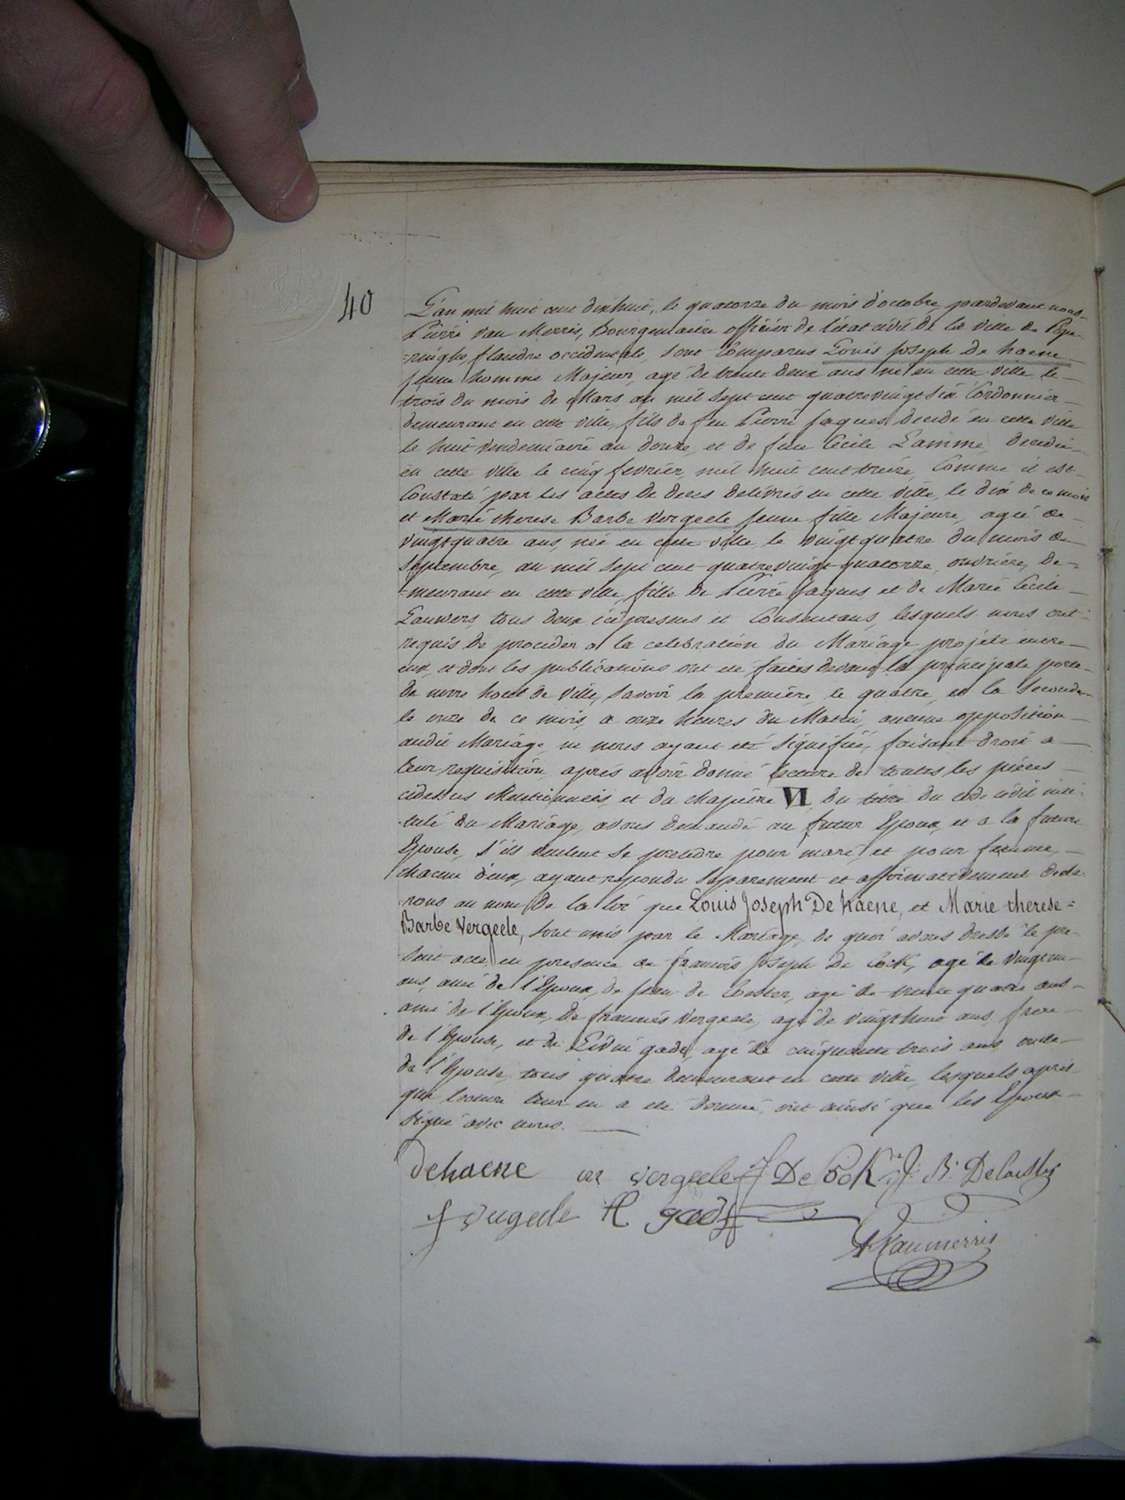 40
L'an mil huit cent dixhuit, le quatorze du mois d'octobre pardevant nous
Pierre van Merris, Bourguemaitre officier de l'état civil de la ville de Pope-
ringhe, flandre occidentale, sont Comparus Louis Joseph De haene
jeune homme Majeur, agé de trente deux ans né en cette ville le
trois du mois de Mars an mil sept cent quatrevingt six Cordonnier
demeurant en cette ville, fils de feu Pierre Jaques decedé en cette ville
le huit vendemiaire an douze, et de feue Cécile Lamme, decedée
en cette ville le cinq fevrier mil huit cent treize, Comme il est
Constaté par les actes de deces delivrés en cette ville, le dix de ce mois
et Marie therese Barbe Vergeele jeune fille Majeure, agée de
vingtquatre ans, née en cette ville le vingtquatre du mois de
Septembre, an mil sept cent quatrevingt quatorze, ouvrière, de=
meurant en cette ville, fille de Pierre Jaques et de Marie Cecile
Lauwers tous deux ici presens et Consentans, lesquels nous ont
requis de proceder a la celebration du Mariage projeté entre
eux, et dont les publications ont été faites devant la principale porte
de notre hotel de Ville, Savoir la première, le quatre, et la Seconde
le onze de ce mois, a onze heures du Matin, aucune opposition
audit Mariage, ne nous ayant été signifiée, faisant droit a
leur requisition, après avoir donné lecture de toutes les pièces
cidessus Mentionnées et du chapitre VI du titre du code civil inti-
tulé du Mariage, avons demandé au futur Epoux, et a la future
Epouse, s'ils veulent se prendre pour mari et pour femme,
chacun d'eux, ayant repondu Separement et affirmativement decla-
rons au nom de la loi que Louis Joseph De haene, et Marie therese=
Barbe Vergeele, sont unis par le Mariage, de quoi avons dressé le pre-
sent acte en presence de francois Joseph De Cock, agé de vingt un
ans, ami de l'Epoux, de Jean de Coster, agé de trente quatre ans
ami de l'Epoux, de francois Vergeele, agé de vingthuit ans frere
de l'Epouse, et de Livin gade, agé de cinquante trois ans oncle
de l'Epouse, tous quatre demeurant en cette ville, lesquels après
que lecture leur en a été donné, ont ainsi que les Epoux
signé avec nous.
dehaene vergeele De Cook J. B.
f vergeele gade
Vanmerris